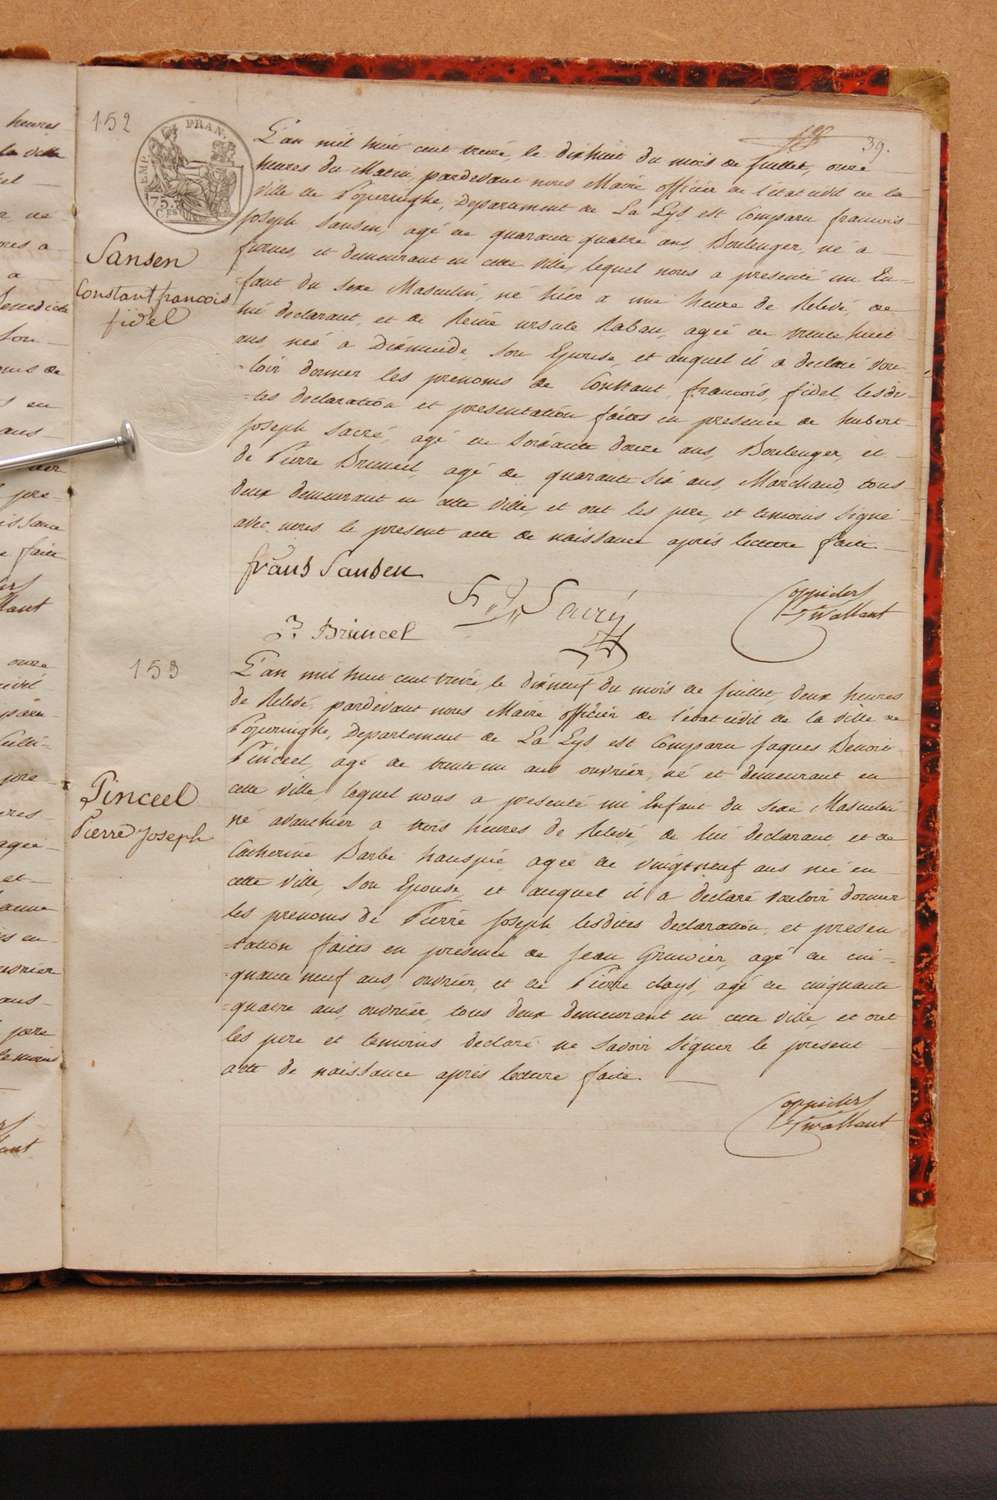 152
39.
EMP. FRAN.
75.
CES
L'an mil huit cent treize, le dixhuit du mois de Juillet, onze
heures du Matin, pardevant nous Maire officier de l'état civil de la
ville de Poperinghe, Departement de La Lys est Comparu francois
Joseph Sansen, agé de quarante quatre ans, Boulenger, né a
furnes, et demeurant en cette ville, lequel nous a presenté un En-
fant du sexe Masculin, né hier a une heure de Relevé, de
lui declarant, et de Reine ursule Rabau, agée de trente huit
ans née a Dixmude, son Epouse, et auquel il a declaré vou
=loir donner les prenoms de Constant, francois, fidel, lesdi-
=tes declaration et presentation faites en presence de hubert
Joseph Sacré, agé de soixante douze ans, Boulenger, et
de Pierre Bruneel, agé de quarante six ans, Marchand, tous
deux demeurant en cette ville, et ont les pere, et temoins signé
avec nous le present acte de naissance après lecture faite.
Sansen
Constant francois
fidel
frans Sansen
H. J. Sacré
P. Bruneel
153
L'an mil huit cent treize, le dixneuf du mois de Juillet, deux heures
de Relevé, pardevant nous Maire officier de l'état civil de la ville de
Poperinghe, Departement de La Lys est Comparu Jaques Benoit
Pinceel, agé de trente un ans ouvrier, né et demeurant en
cette ville, lequel nous a presenté un Enfant du sexe Masculin
né avanthier a trois heures de Relevé, de lui declarant et de
Catherine Barbe hauspie, agée de vingtneuf ans née en
cette ville, son Epouse, et auquel il a declaré vouloir donner
les prenoms de Pierre Joseph, lesdites declaration, et presen
=tation faites en presence de Jean Gruwier, agé de cin
=quante neuf ans, ouvrier, et de Pierre Clays, agé de cinquante
=quatre ans, ouvrier tous deux demeurant en cette ville et ont
les pere et temoins declaré ne savoir signer le present
acte de naissance après lecture faite.
Pinceel
Pierre Joseph